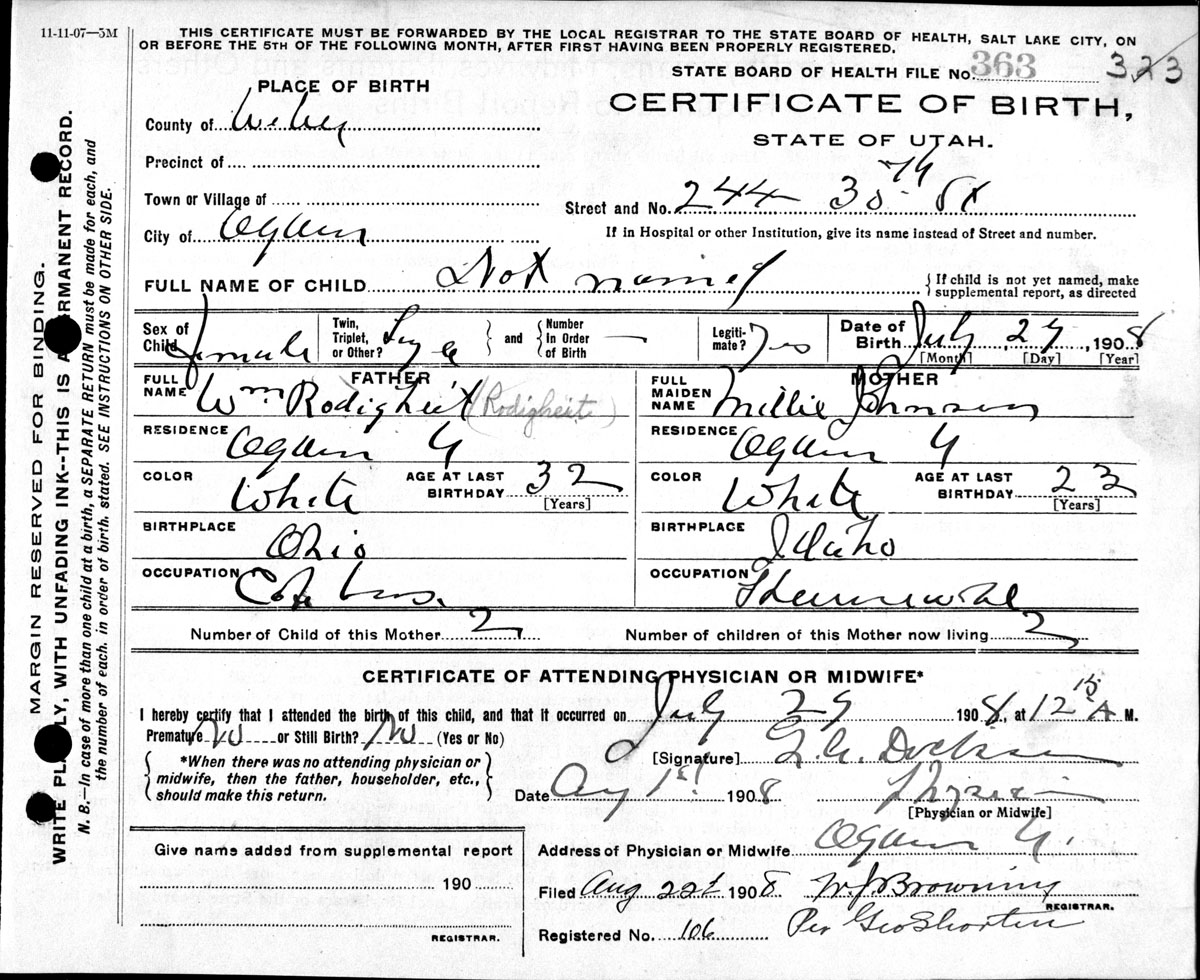 11-11-07—3M
THIS CERTIFICATE MUST BE FORWARDED BY THE LOCAL REGISTRAR TO THE STATE BOARD OF HEALTH, SALT LAKE CITY, ON
OR BEFORE THE 5TH OF THE FOLLOWING MONTH, AFTER FIRST HAVING BEEN PROPERLY REGISTERED.
STATE BOARD OF HEALTH FILE No. 363 323
PLACE OF BIRTH
CERTIFICATE OF BIRTH,
STATE OF UTAH.
County of Weber
Precinct of
Town or Village of
Street and No. 244 30th St
City of Ogden
If in Hospital or other Institution, give its name instead of Street and number.
FULL NAME OF CHILD Not named
{If child is not yet named, make
supplemental report, as directed
Sex of Child female Twin, Triplet, or Other? Single and Number In Order of Birth — Legiti-mate? Yes Date of Birth July 29, 1908
[Month] [Day] [Year]
FATHER
FULL NAME Wm Rodigheit (Rodigheit)
RESIDENCE Ogden U
COLOR White AGE AT LAST BIRTHDAY 32
[Years]
BIRTHPLACE Ohio
OCCUPATION
MOTHER
FULL MAIDEN NAME Millie Johnson
RESIDENCE Ogden U
COLOR White AGE AT LAST BIRTHDAY 23
[Years]
BIRTHPLACE Idaho
OCCUPATION
Number of Child of this Mother 2 Number of children of this Mother now living 2
CERTIFICATE OF ATTENDING PHYSICIAN OR MIDWIFE*
I hereby certify that I attended the birth of this child, and that it occurred on July 29 1908, at 12 15 A M.
Premature No or Still Birth? No (Yes or No)
*When there was no attending physician or
midwife, then the father, householder, etc.,
should make this return.
[Signature]
Date Aug 1st 1908 Physician
[Physician or Midwife]
Address of Physician or Midwife Ogden U.
Filed Aug 22d 1908 W J Browning
REGISTRAR.
Registered No. 106 Per Geo Shorten
Give name added from supplemental report
190
REGISTRAR.
MARGIN RESERVED FOR BINDING.
WRITE PLAINLY, WITH UNFADING INK--THIS IS A PERMANENT RECORD.
N. B.—In case of more than one child at a birth, a SEPARATE RETURN must be made for each, and
the number of each, in order of birth, stated. SEE INSTRUCTIONS ON OTHER SIDE.